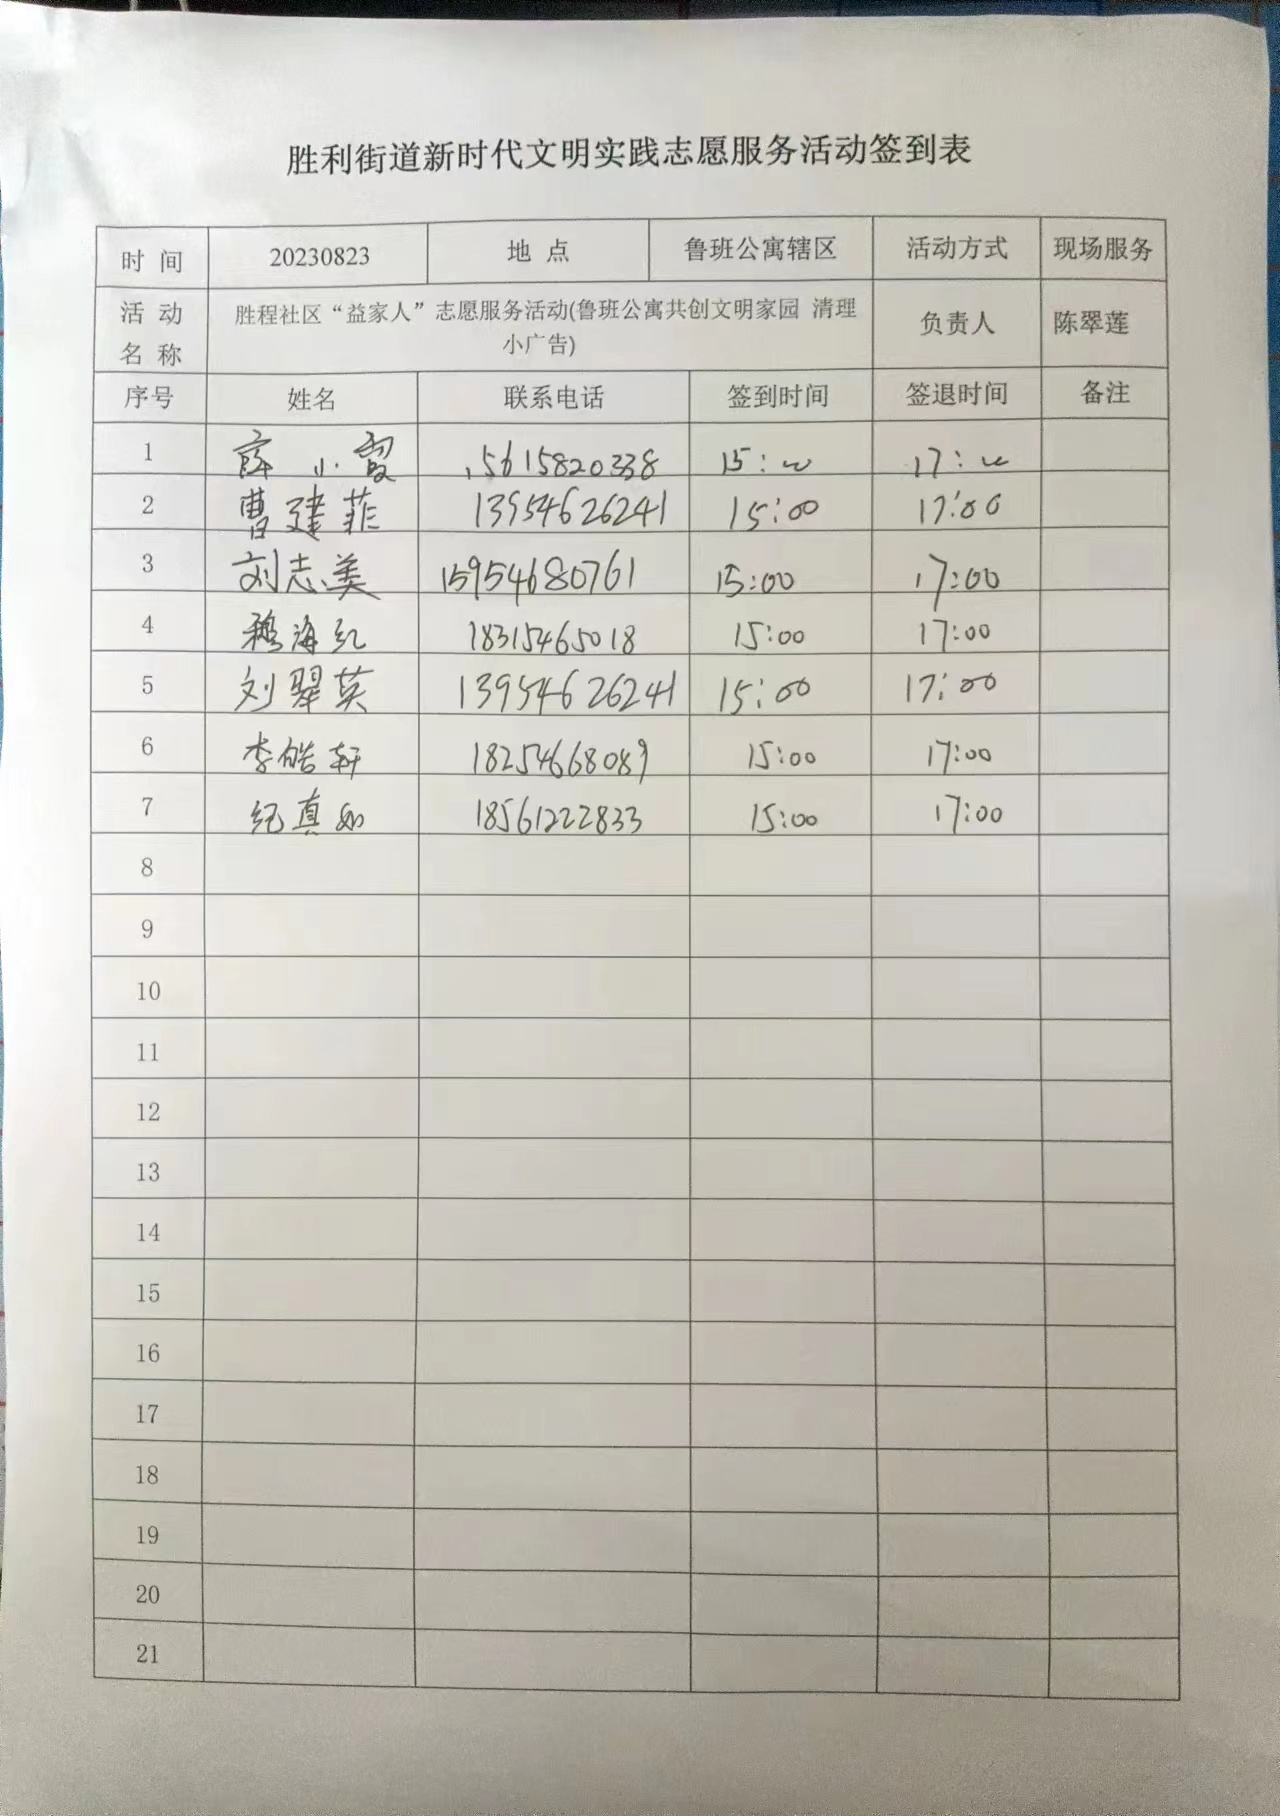 胜利街道新时代文明实践志愿服务活动签到表
时 间 20230823 地 点 鲁班公寓辖区 活动方式 现场服务
活 动 名 称 胜程社区“益家人”志愿服务活动(鲁班公寓共创文明家园 清理小广告) 负责人 陈翠莲
序号 姓名 联系电话 签到时间 签退时间 备注
1 薛小霞 15615820338 15:00 17:00
2 曹建菲 13954626241 15:00 17:00
3 刘志美 15954680761 15:00 17:00
4 穆海红 18315465018 15:00 17:00
5 刘翠英 13954626241 15:00 17:00
6 李皓轩 18254668089 15:00 17:00
7 纪真如 18561222833 15:00 17:00
8
9
10
11
12
13
14
15
16
17
18
19
20
21